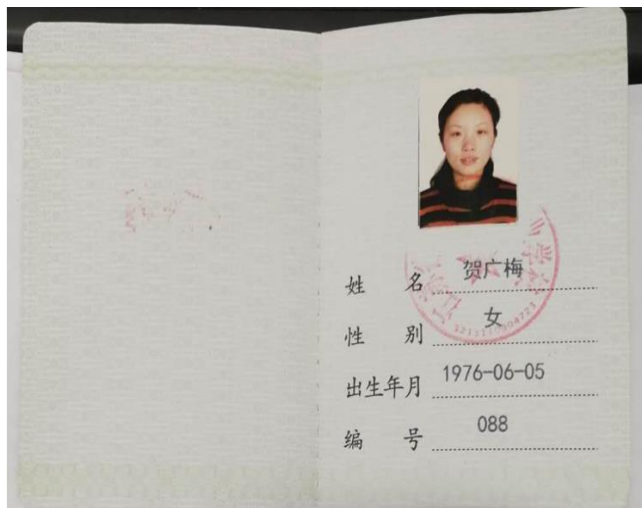 姓 名 贺广梅
性 别 女
出生年月 1976-06-05
编 号 088